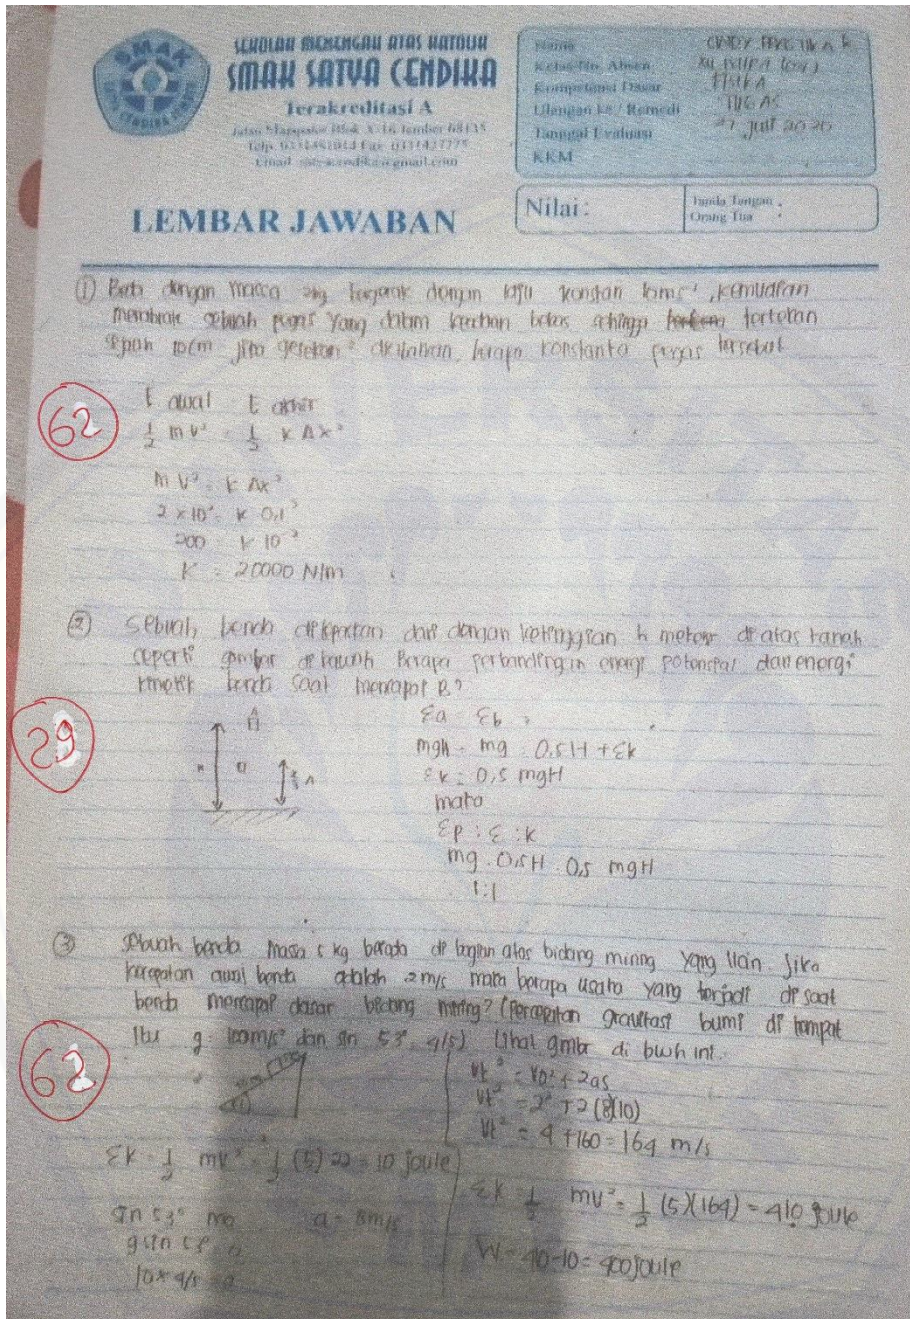 SMAK
SATYA CENDIKA JEMBER
SEKOLAH MENENGAH ATAS KATOLIK
SMAK SATYA CENDIKA
Terakreditasi A
Email
Nama
Kelas/No. Absen
Kompetensi Dasar FISIKA
Ulangan ke / Remedi TUGAS
Tanggal Evaluasi 27 Juli 2020
KKM
LEMBAR JAWABAN
Nilai :
Tanda Tangan :
Orang Tua
① dengan massa 2kg bergerak dengan laju konstan , kemudian
menabrak sebuah pegas yang dalam keadaan bebas sehingga tertekan
10cm jika gesekan diabaikan, berapa konstanta pegas tersebut
62
E awal E akhir
1/2 m v² = 1/2 k Δx²
m v² = k Δx²
2 × 10² = k 0,1²
200 k 10⁻²
K = 20000 N/m
② Sebuah benda dari dengan ketinggian h meter di atas tanah
seperti gambar di bawah Berapa perbandingan energi potensial dan energi
kinetik benda saat mencapai B?
29
A
Ea Eb
mgh = mg 0,5H + Ek
Ek = 0,5 mgH
maka
Ep : E : k
mg . 0,5H . 0,5 mgH
1:1
③ Sebuah benda masa 5 kg berada di bagian atas bidang miring yang licin. Jika
kecepatan awal benda adalah 2 m/s maka berapa usaha yang terjadi di saat
benda mencapai dasar bidang miring? (Percepatan gravitasi bumi di tempat
itu g = dan sin 53° 4/5) Lihat gmbr di bwh ini
62
Vt² = Vo² + 2as
Vt² = 2² + 2(8)(10)
Vt² = 4 + 160 = 164 m/s
Ek = 1/2 mv² = 1/2 (5) = 10 joule
Ek 1/2 mv² = 1/2 (5)(164) = 410 joule
sin 53° a = 8m/s
g sin 53°
10 × 4/5 = a
W = 410-10 = 400 joule